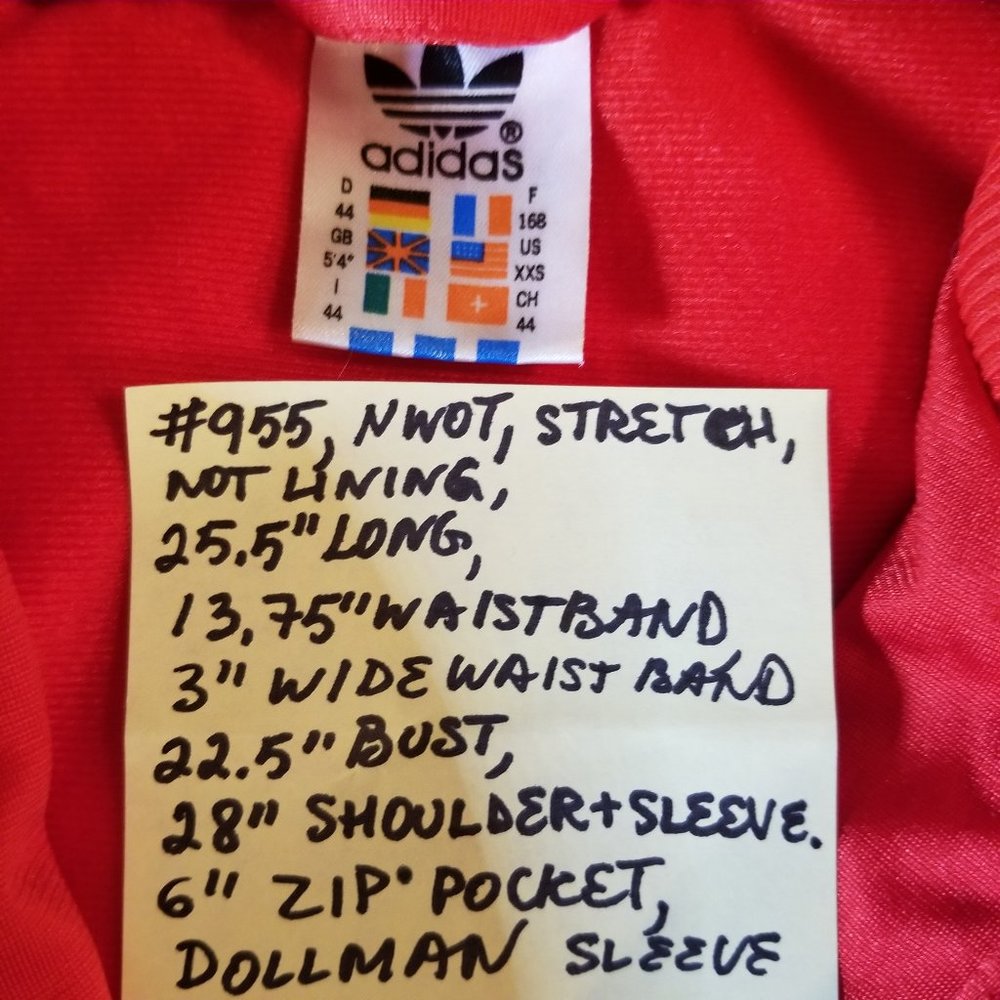 adidas®
D
44
GB
5'4"
I
44
F
168
US
XXS
CH
44
#955, NWOT, STRETCH,
NOT LINING,
25.5" LONG,
13.75" WAISTBAND
3" WIDE WAIST BAND
22.5" BUST,
28" SHOULDER+SLEEVE.
6" ZIP• POCKET,
DOLLMAN SLEEVE